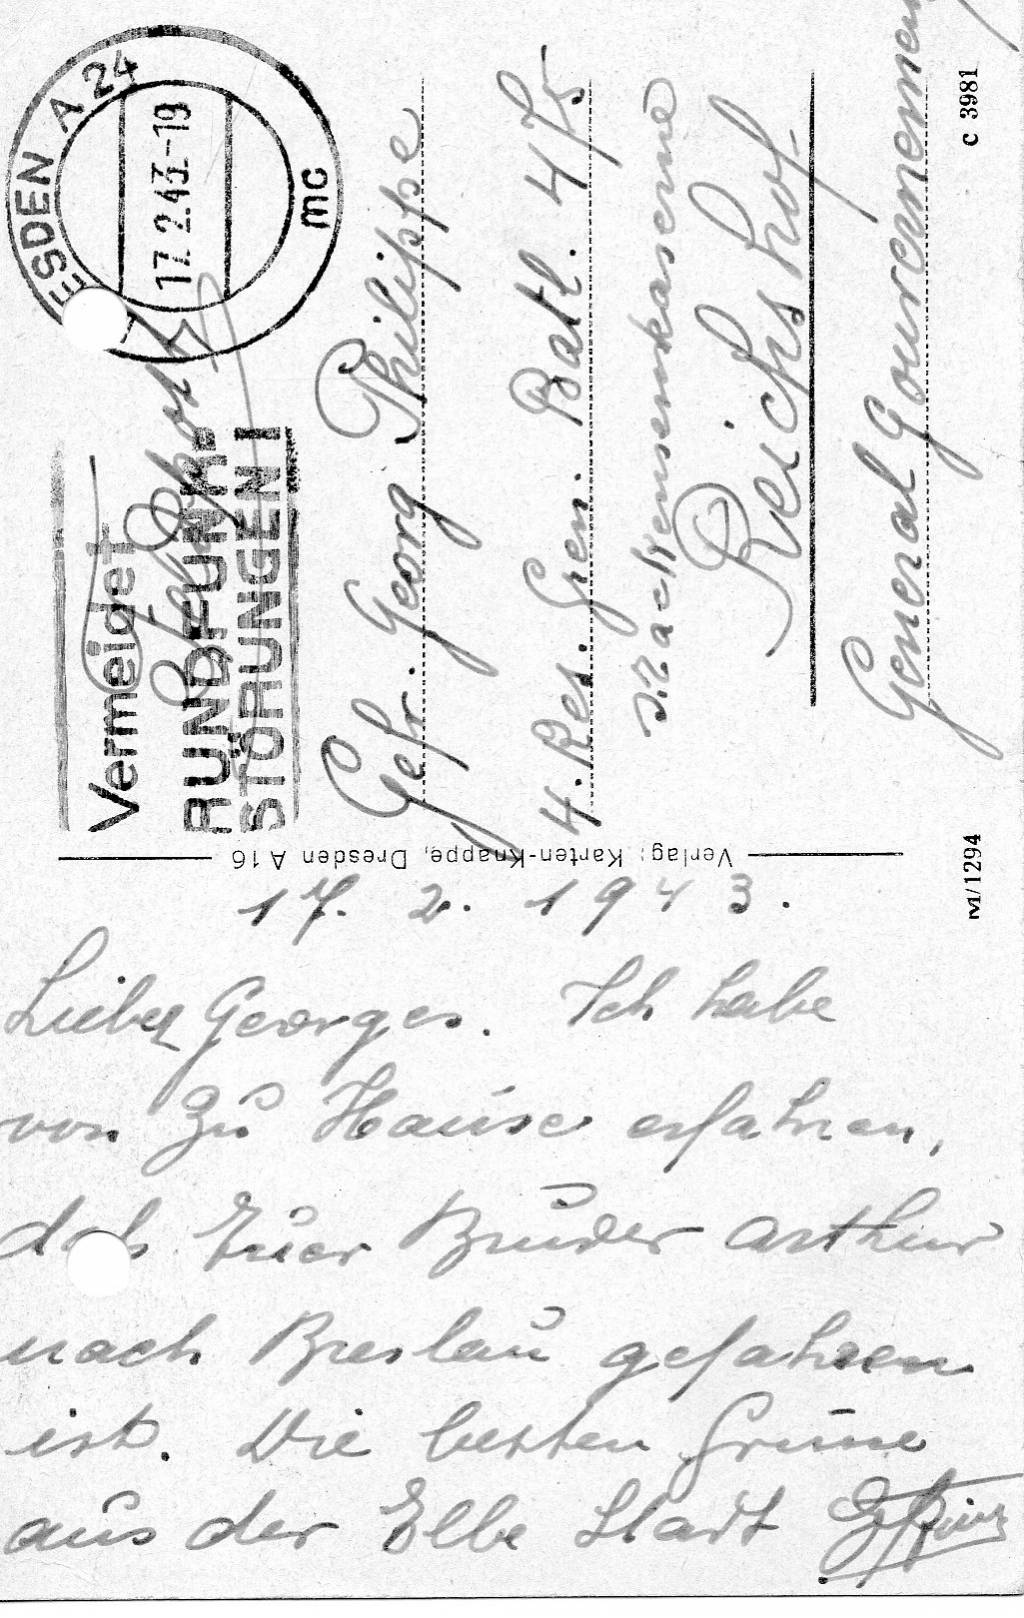 17. 2. 1943.
Lieber Georges. Ich habe
von zu Hause erfahren,
daß Euer Bruder Arthur
nach Breslau gefahren
ist. Die besten Grüsse
aus der Elbe Stadt
Verlag: Karten-Knappe, Dresden A 16
M/1294
C 3981
ESDEN A 24
17.2.43.-19
mc
Vermeidet
RUNDFUNK-
STÖRUNGEN!
Feldpost
Gefr. Georg Philippe
4. Res. Gren. Batl. 4/75
Mackensenkaserne
Reichshof
General Gouvernement